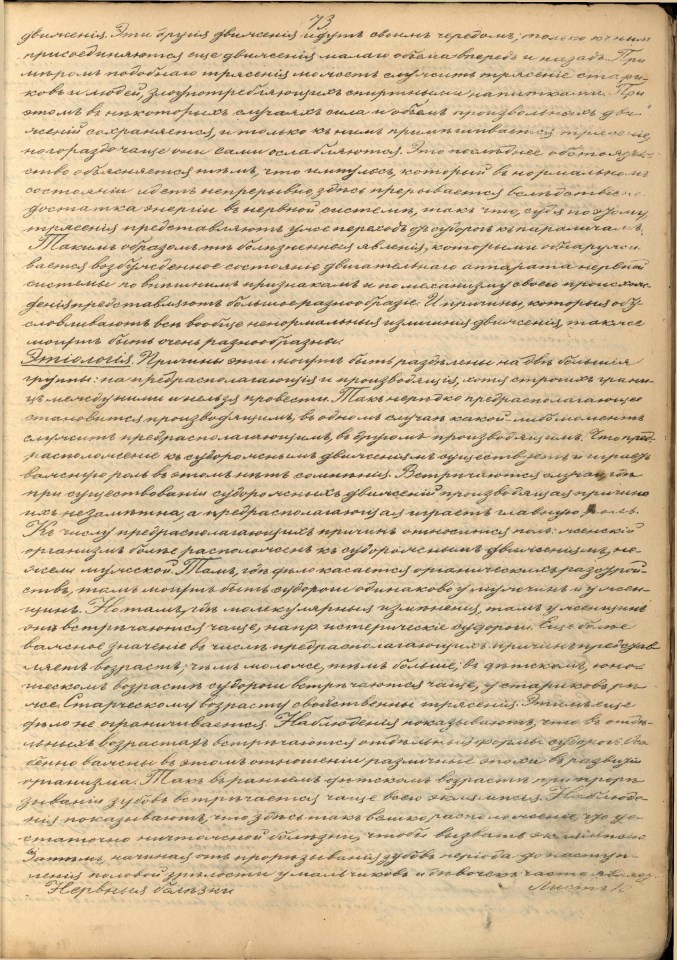 73
движенія. Эти другія движенія идутъ своимъ чередомъ; только къ нимъ
присоединяются еще движенія малаго объема впередъ и назадъ. При
мѣромъ подобнаго трясенія можетъ служить трясеніе стари-
ковъ и людей, злоупотребляющихъ спиртными напитками. При
этомъ въ нѣкоторыхъ случаяхъ сила и объемъ произвольныхъ дви-
женій сохраняется, и только къ нимъ примѣшивается трясеніе,
но гораздо чаще они сами ослабляются. Это послѣднее обстоятель-
ство объясняется тѣмъ, что импульсъ, который въ нормальномъ
состояніи идетъ непрерывно, здѣсь прерывается вслѣдствіе не-
достатка энергіи въ нервной системѣ, такъ что, судя по этому,
трясенія представляютъ уже переходъ судорогъ къ параличамъ.
Такимъ образомъ тѣ болѣзненныя явленія, которыми обнаружи-
вается возбужденное состояніе двигательнаго аппарата нервной
системы по внѣшнимъ признакамъ и по механизму своего происхож-
денія представляютъ большое разнообразіе. И причины, которыя обу-
словливаютъ всѣ вообще ненормальныя измѣненія движенія, также
могутъ быть очень разнообразны.
Этіологія. Причины эти могутъ быть раздѣлены на двѣ большія
группы: на предрасполагающія и производящія, хотя строгихъ грани-
цъ между ними и нельзя провести. Такъ нерѣдко предрасполагающее
становится производящимъ, въ одномъ случаѣ какой-либо моментъ
служитъ предрасполагающимъ, въ другомъ производящимъ. Что пред-
расположеніе къ судорожнымъ движеніямъ существуетъ и играетъ
важную роль въ этомъ нѣтъ сомнѣнія. Встрѣчаются случаи, гдѣ
при существованіи судорожныхъ движеній производящая причина
ихъ незамѣтна, а предрасполагающая играетъ главную роль.
Къ числу предрасполагающихъ причинъ относится полъ: женскій
организмъ болѣе расположенъ къ судорожнымъ движеніямъ, не-
жели мужской. Тамъ, гдѣ дѣло касается органическихъ разстрой-
ствъ, тамъ могутъ быть судороги одинаково у мужчинъ и у жен-
щинъ. Но тамъ, гдѣ молекулярныя измѣненія, тамъ у женщинъ
онѣ встрѣчаются чаще, напр. истерическіе судороги. Еще болѣе
важное значеніе въ числѣ предрасполагающихъ причинъ представ-
ляетъ возрастъ; чѣмъ моложе, тѣмъ больше; въ дѣтскомъ, юно-
шескомъ возрастѣ судороги встрѣчаются чаще, у стариковъ рѣ-
же. Старческому возрасту свойственны трясенія. Этимъ еще
дѣло не ограничивается. Наблюденія показываютъ, что въ отдѣ-
льныхъ возрастахъ встрѣчаются отдѣльныя формы судорогъ. Осо-
бенно важны въ этомъ отношеніи различныя эпохи въ развитіи
организма. Такъ въ раннемъ дѣтскомъ возрастѣ при проры
зываніи зубовъ встрѣчается чаще всего эклампсія. Наблюде-
нія показываютъ, что здѣсь такъ велико расположеніе, что до-
статочно ничтожной болѣзни, чтобы вызвать эклампсію.
Затѣмъ, начиная отъ прорѣзыванія зубовъ періода до наступ-
ленія половой зрѣлости у мальчиковъ и дѣвочекъ часто
Нервныя болѣзни Листъ